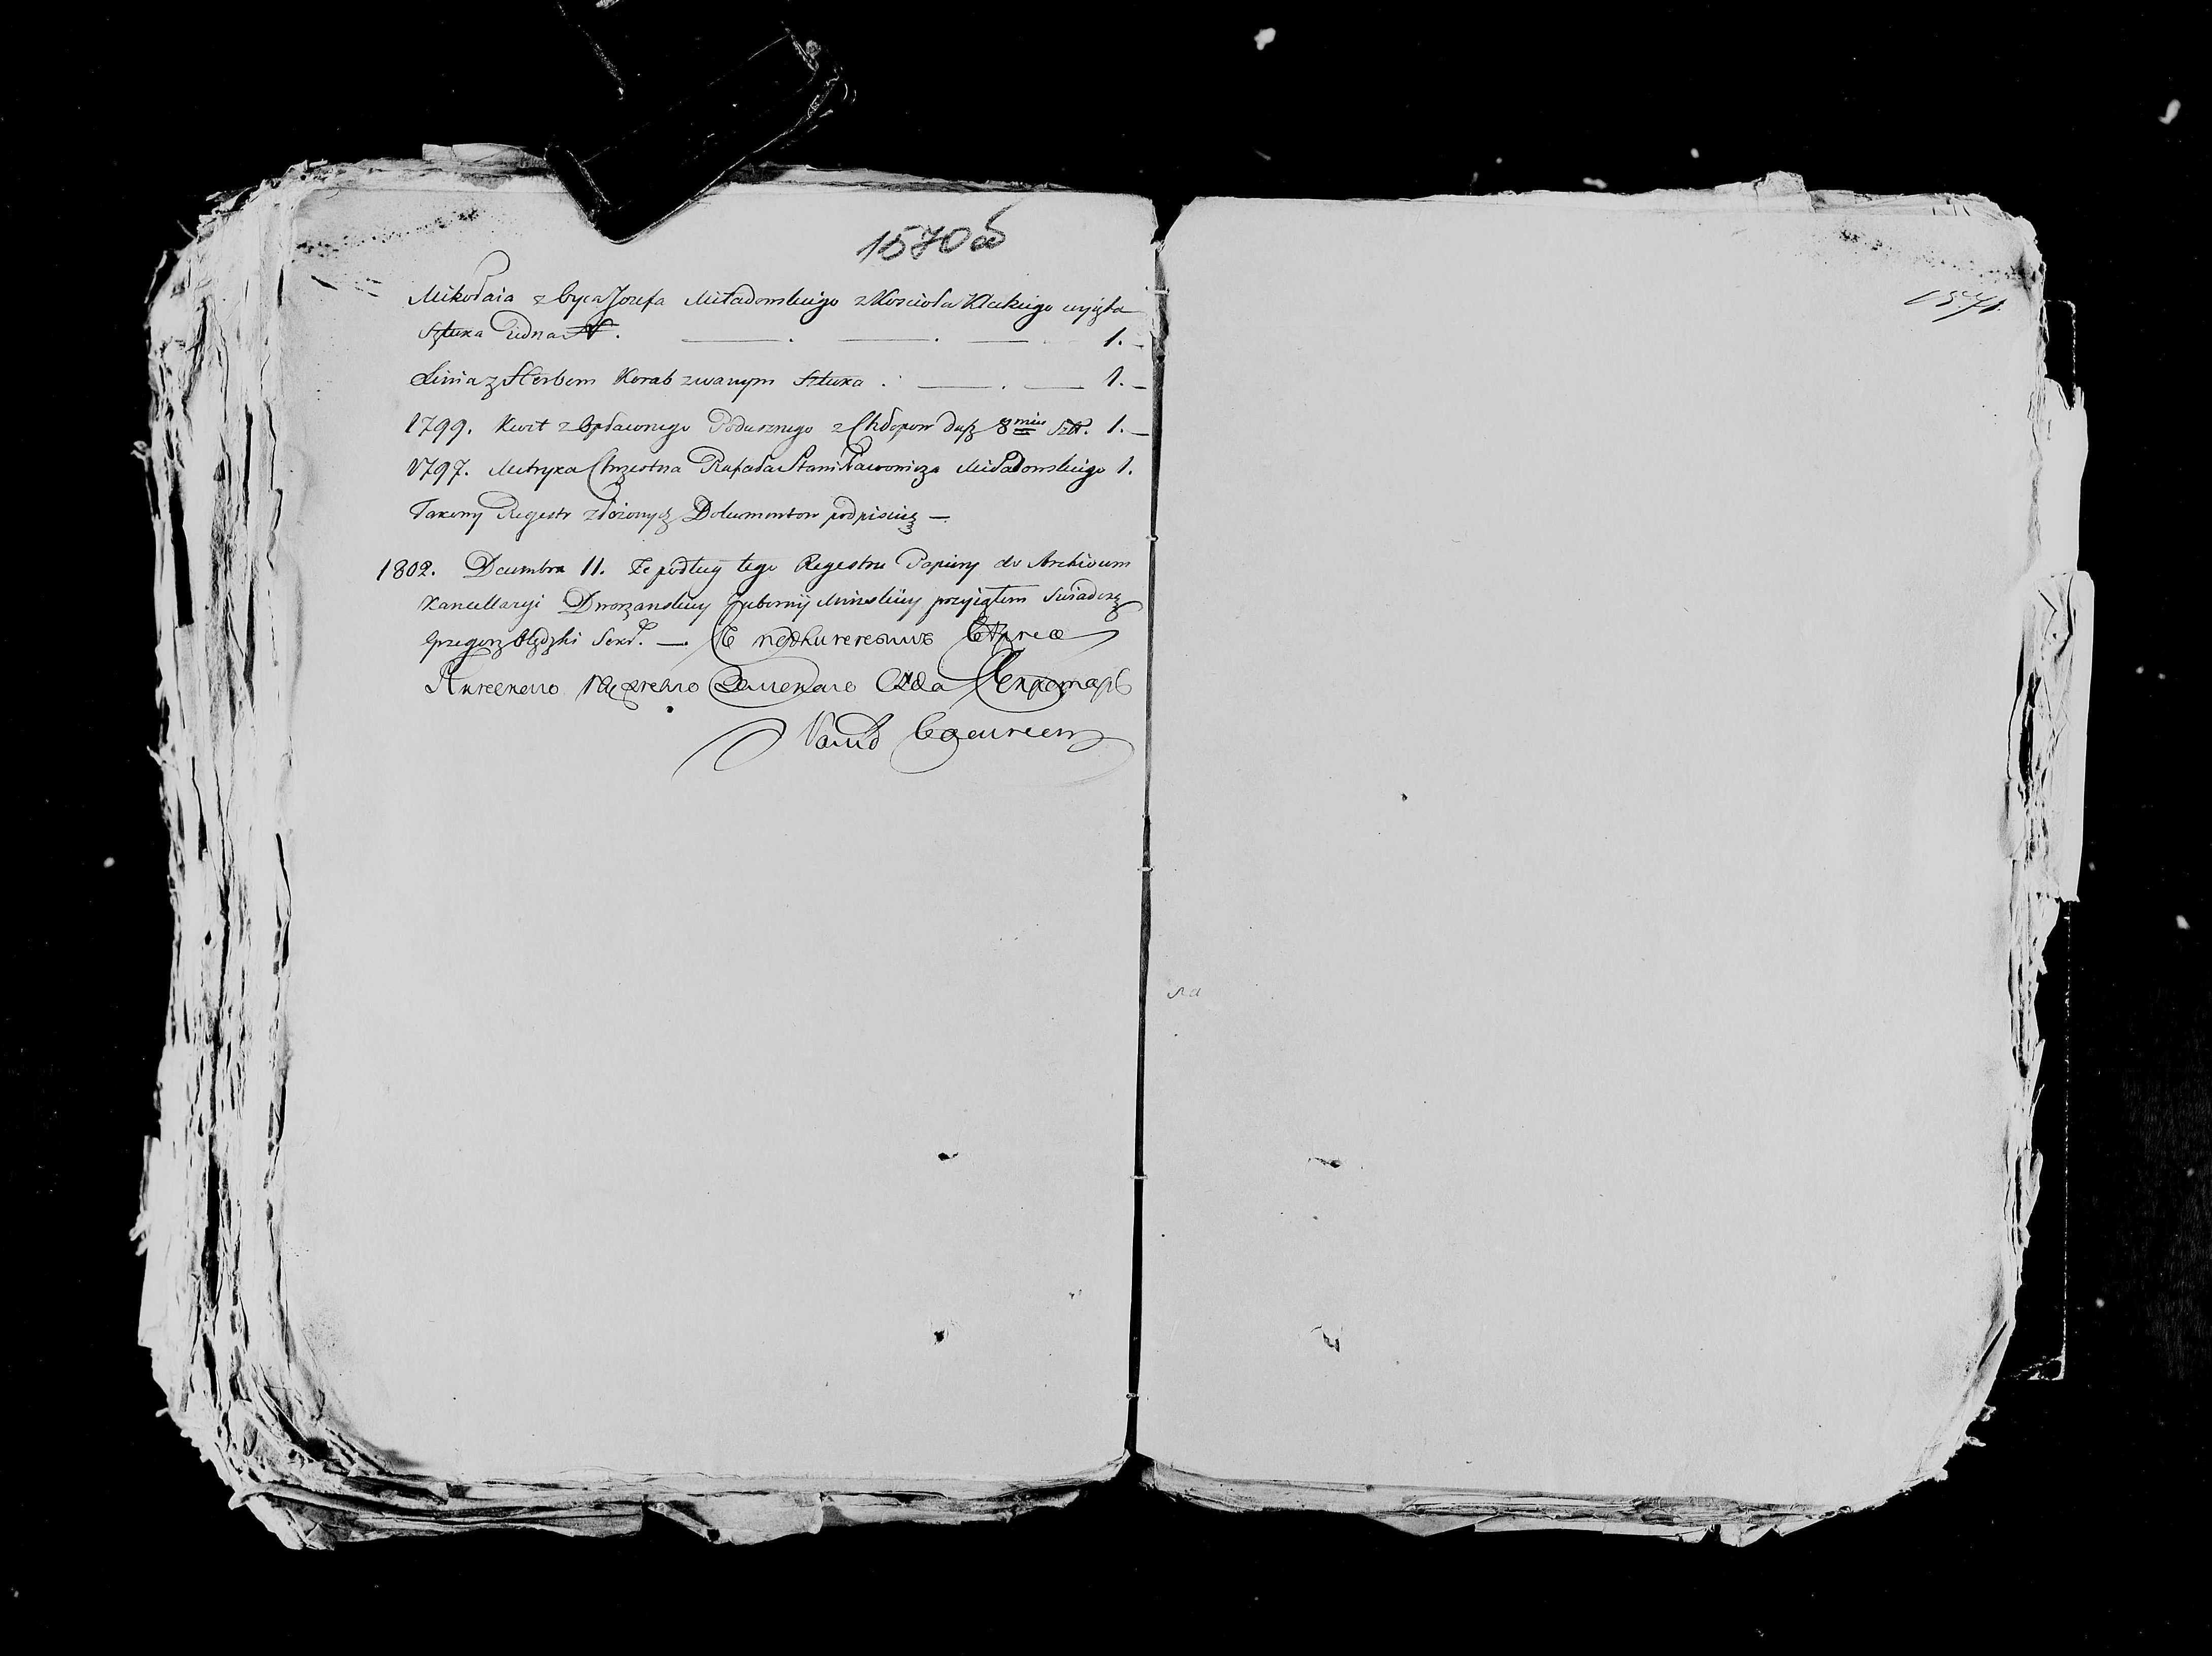 1570 об
Mikołaia z Oyca Jozefa Miładowskiego z Koscioła Kleckiego wyięta
Sztuka Jedna N. — . — . — 1. —
Linia z Herbem Korab zwanym Sztuka . — . — 1. —
1799. Kwit z Opłaconego Podusznego z Chłopow dusz 8miu Szt. 1. —
1797. Metryka Chrzestna Rafała Stanisławowicza Miładowskiego 1.
Takowy Regestr złożonych Dokumentow podpisuię —
1802. Decembra 11. Ze podług tego Regestru Papiery do Archiwum
Kancellaryi Dworzanskiey Gubernij Minskiey przyiąłem Swiadczę
Grzegorz Sekr. —. Съ подлиннымъ
Секретарь
1571.